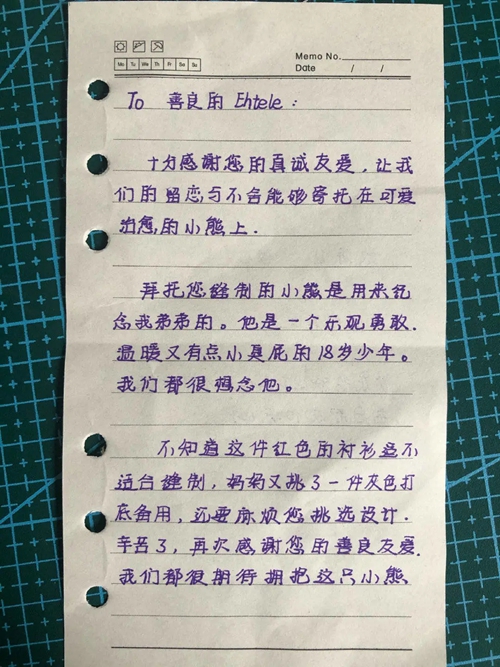 Memo No.
Mo Tu We Th Fr Sa Su
Date / /
To 善良的 Ehtele：
十分感谢您的真诚友爱，让我
们的留恋与不舍能够寄托在可爱
治愈的小熊上.
拜托您缝制的小熊是用来纪
念我弟弟的。他是一个乐观勇敢.
温暖又有点小臭屁的18岁少年。
我们都很想念他。
不知道这件红色的衬衫适不
适合缝制，妈妈又挑了一件灰色打
底备用，还要麻烦您挑选设计.
辛苦了，再次感谢您的善良友爱.
我们都很期待拥抱这只小熊